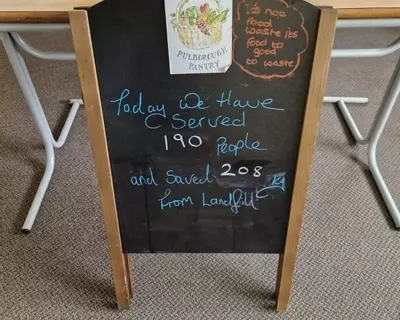 PULBOROUGH
PANTRY
it's not
food
waste its
food to
good
to waste
Today We Have
Served
190 People
and Saved 208
From Landfill